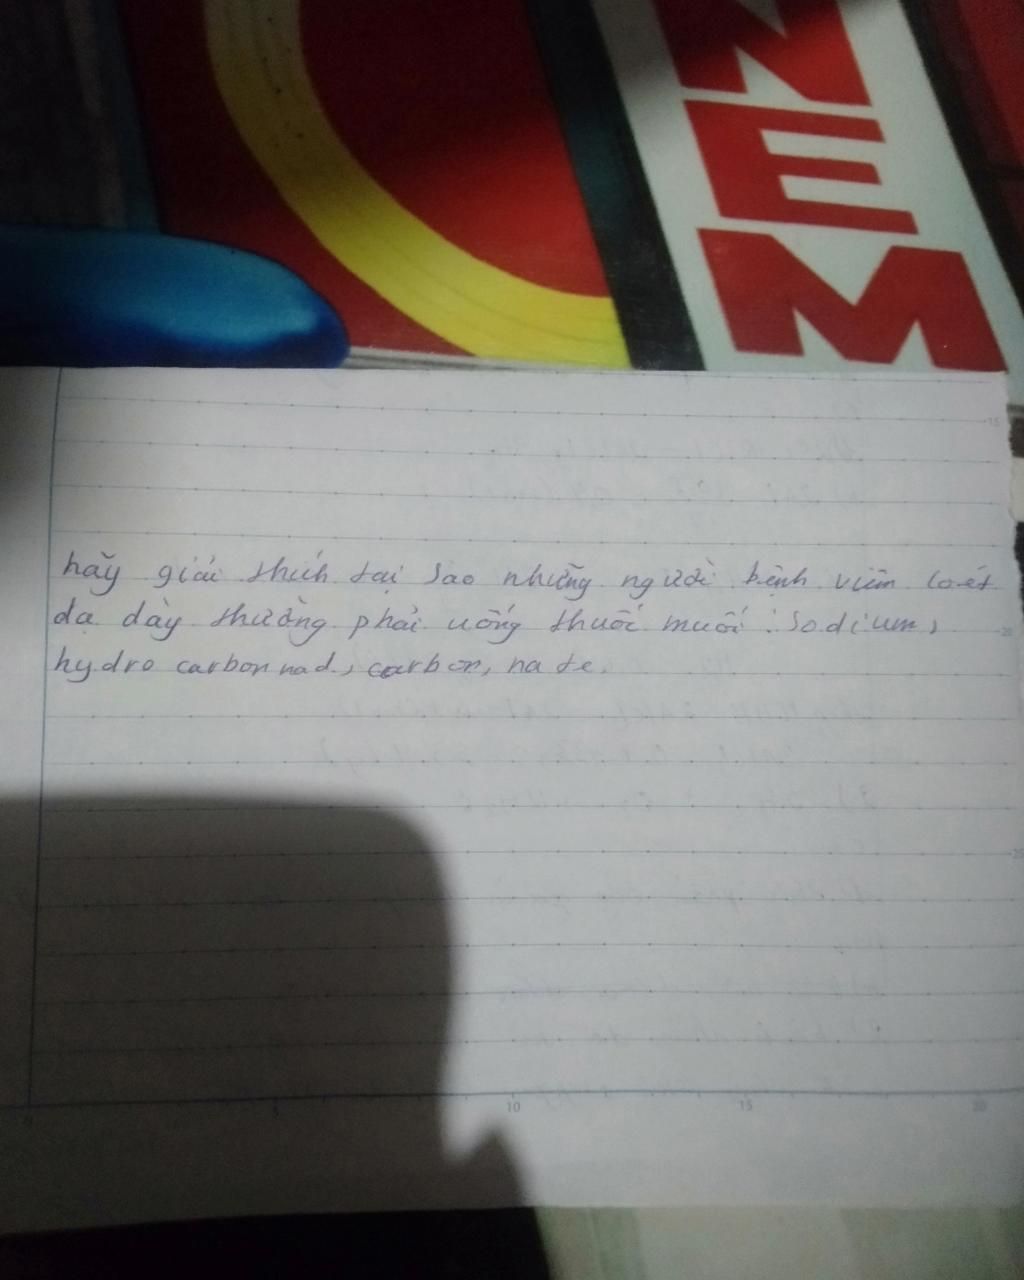 NEM
15
hãy giải thích tại sao những người bệnh viêm loét
dạ dày thường phải uống thuốc muối : Sodium,
20
hydro carbon nad, carbon, na te.
25
0 5 10 15 20